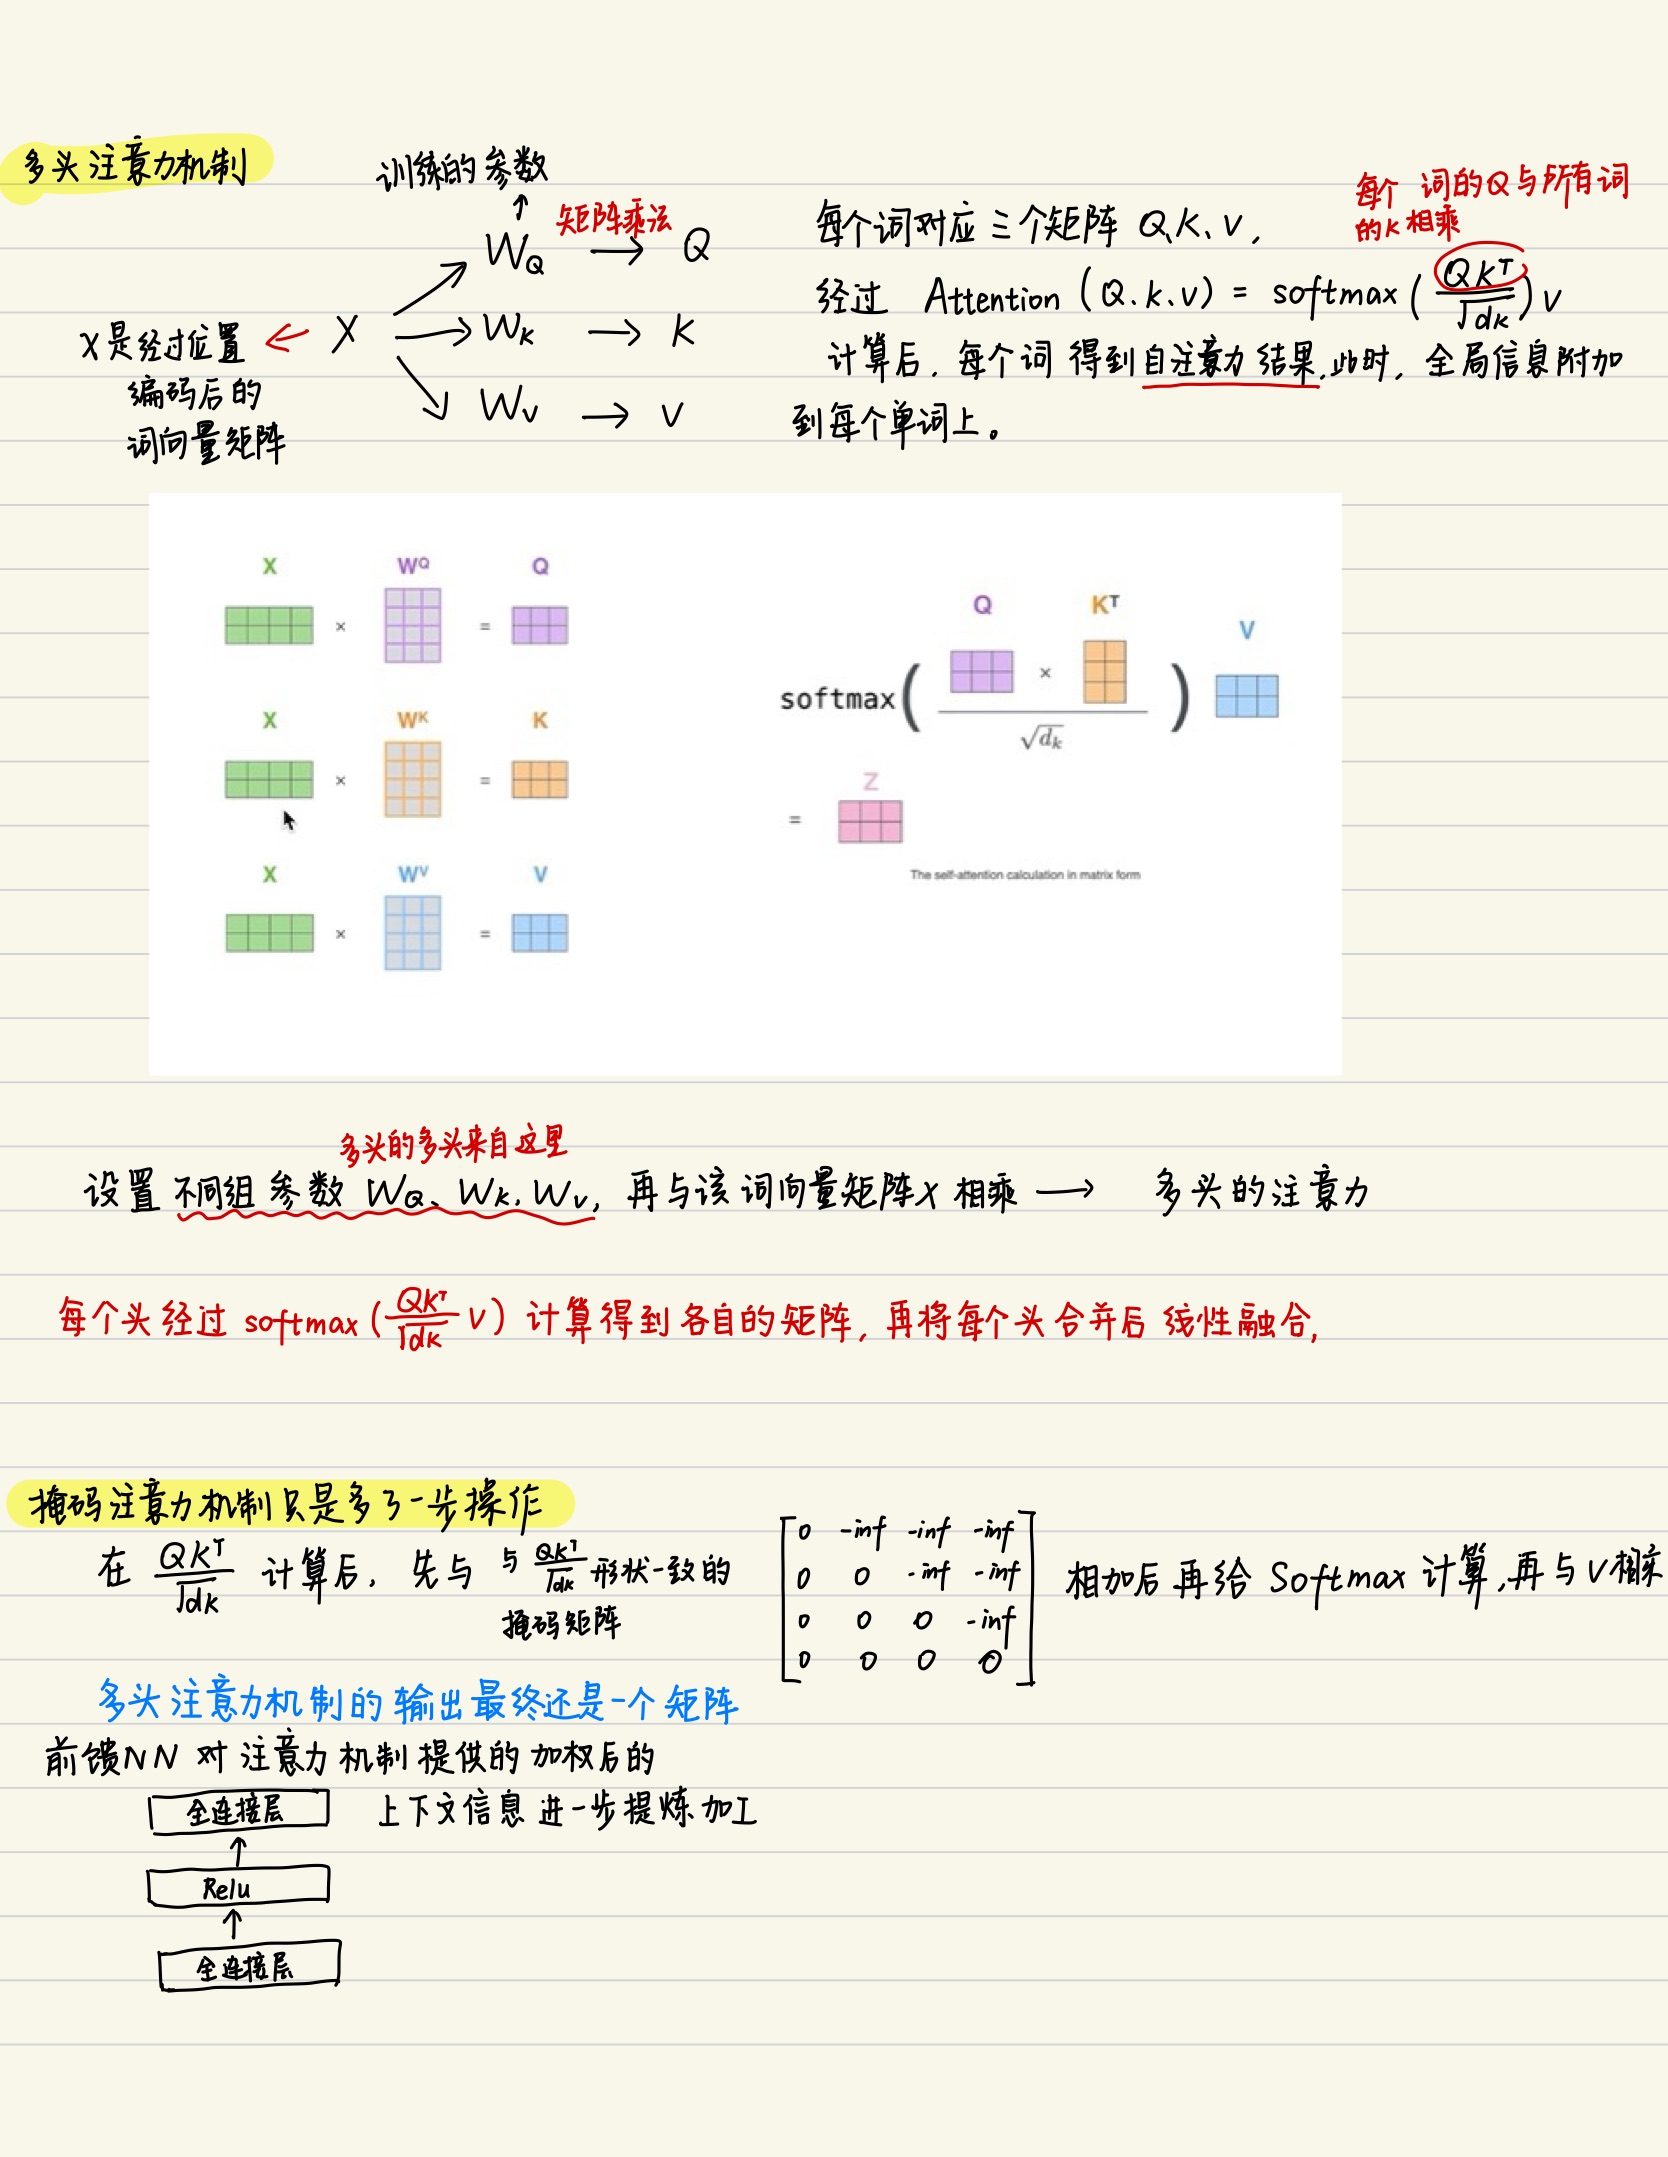 多头注意力机制
训练的参数
↑
W_Q 矩阵乘法 → Q
X → W_K → K
W_V → V
X是经过位置
编码后的
词向量矩阵
每个词的Q与所有词
的K相乘
每个词对应三个矩阵 Q、K、V,
经过 Attention (Q.K.V) = softmax (QK^T/√dk) V
计算后, 每个词得到自注意力结果,此时, 全局信息附加
到每个单词上。
X W^Q Q
× =
X W^K K
× =
X W^V V
× =
Q K^T V
softmax ( × )
√d_k
Z
=
The self-attention calculation in matrix form
多头的多头来自这里
设置不同组参数 W_Q、W_K、W_V, 再与该词向量矩阵X相乘 → 多头的注意力
每个头经过 softmax (QK^T/√dk V) 计算得到各自的矩阵, 再将每个头合并后线性融合,
掩码注意力机制只是多了一步操作
在 QK^T/√dk 计算后, 先与 与 QK^T/√dk 形状一致的
掩码矩阵
0 -inf -inf -inf
0 0 -inf -inf
0 0 0 -inf
0 0 0 0
相加后再给 Softmax 计算,再与V相乘
多头注意力机制的输出最终还是一个矩阵
前馈NN 对注意力机制提供的加权后的
上下文信息进一步提炼加工
全连接层
↑
Relu
↑
全连接层